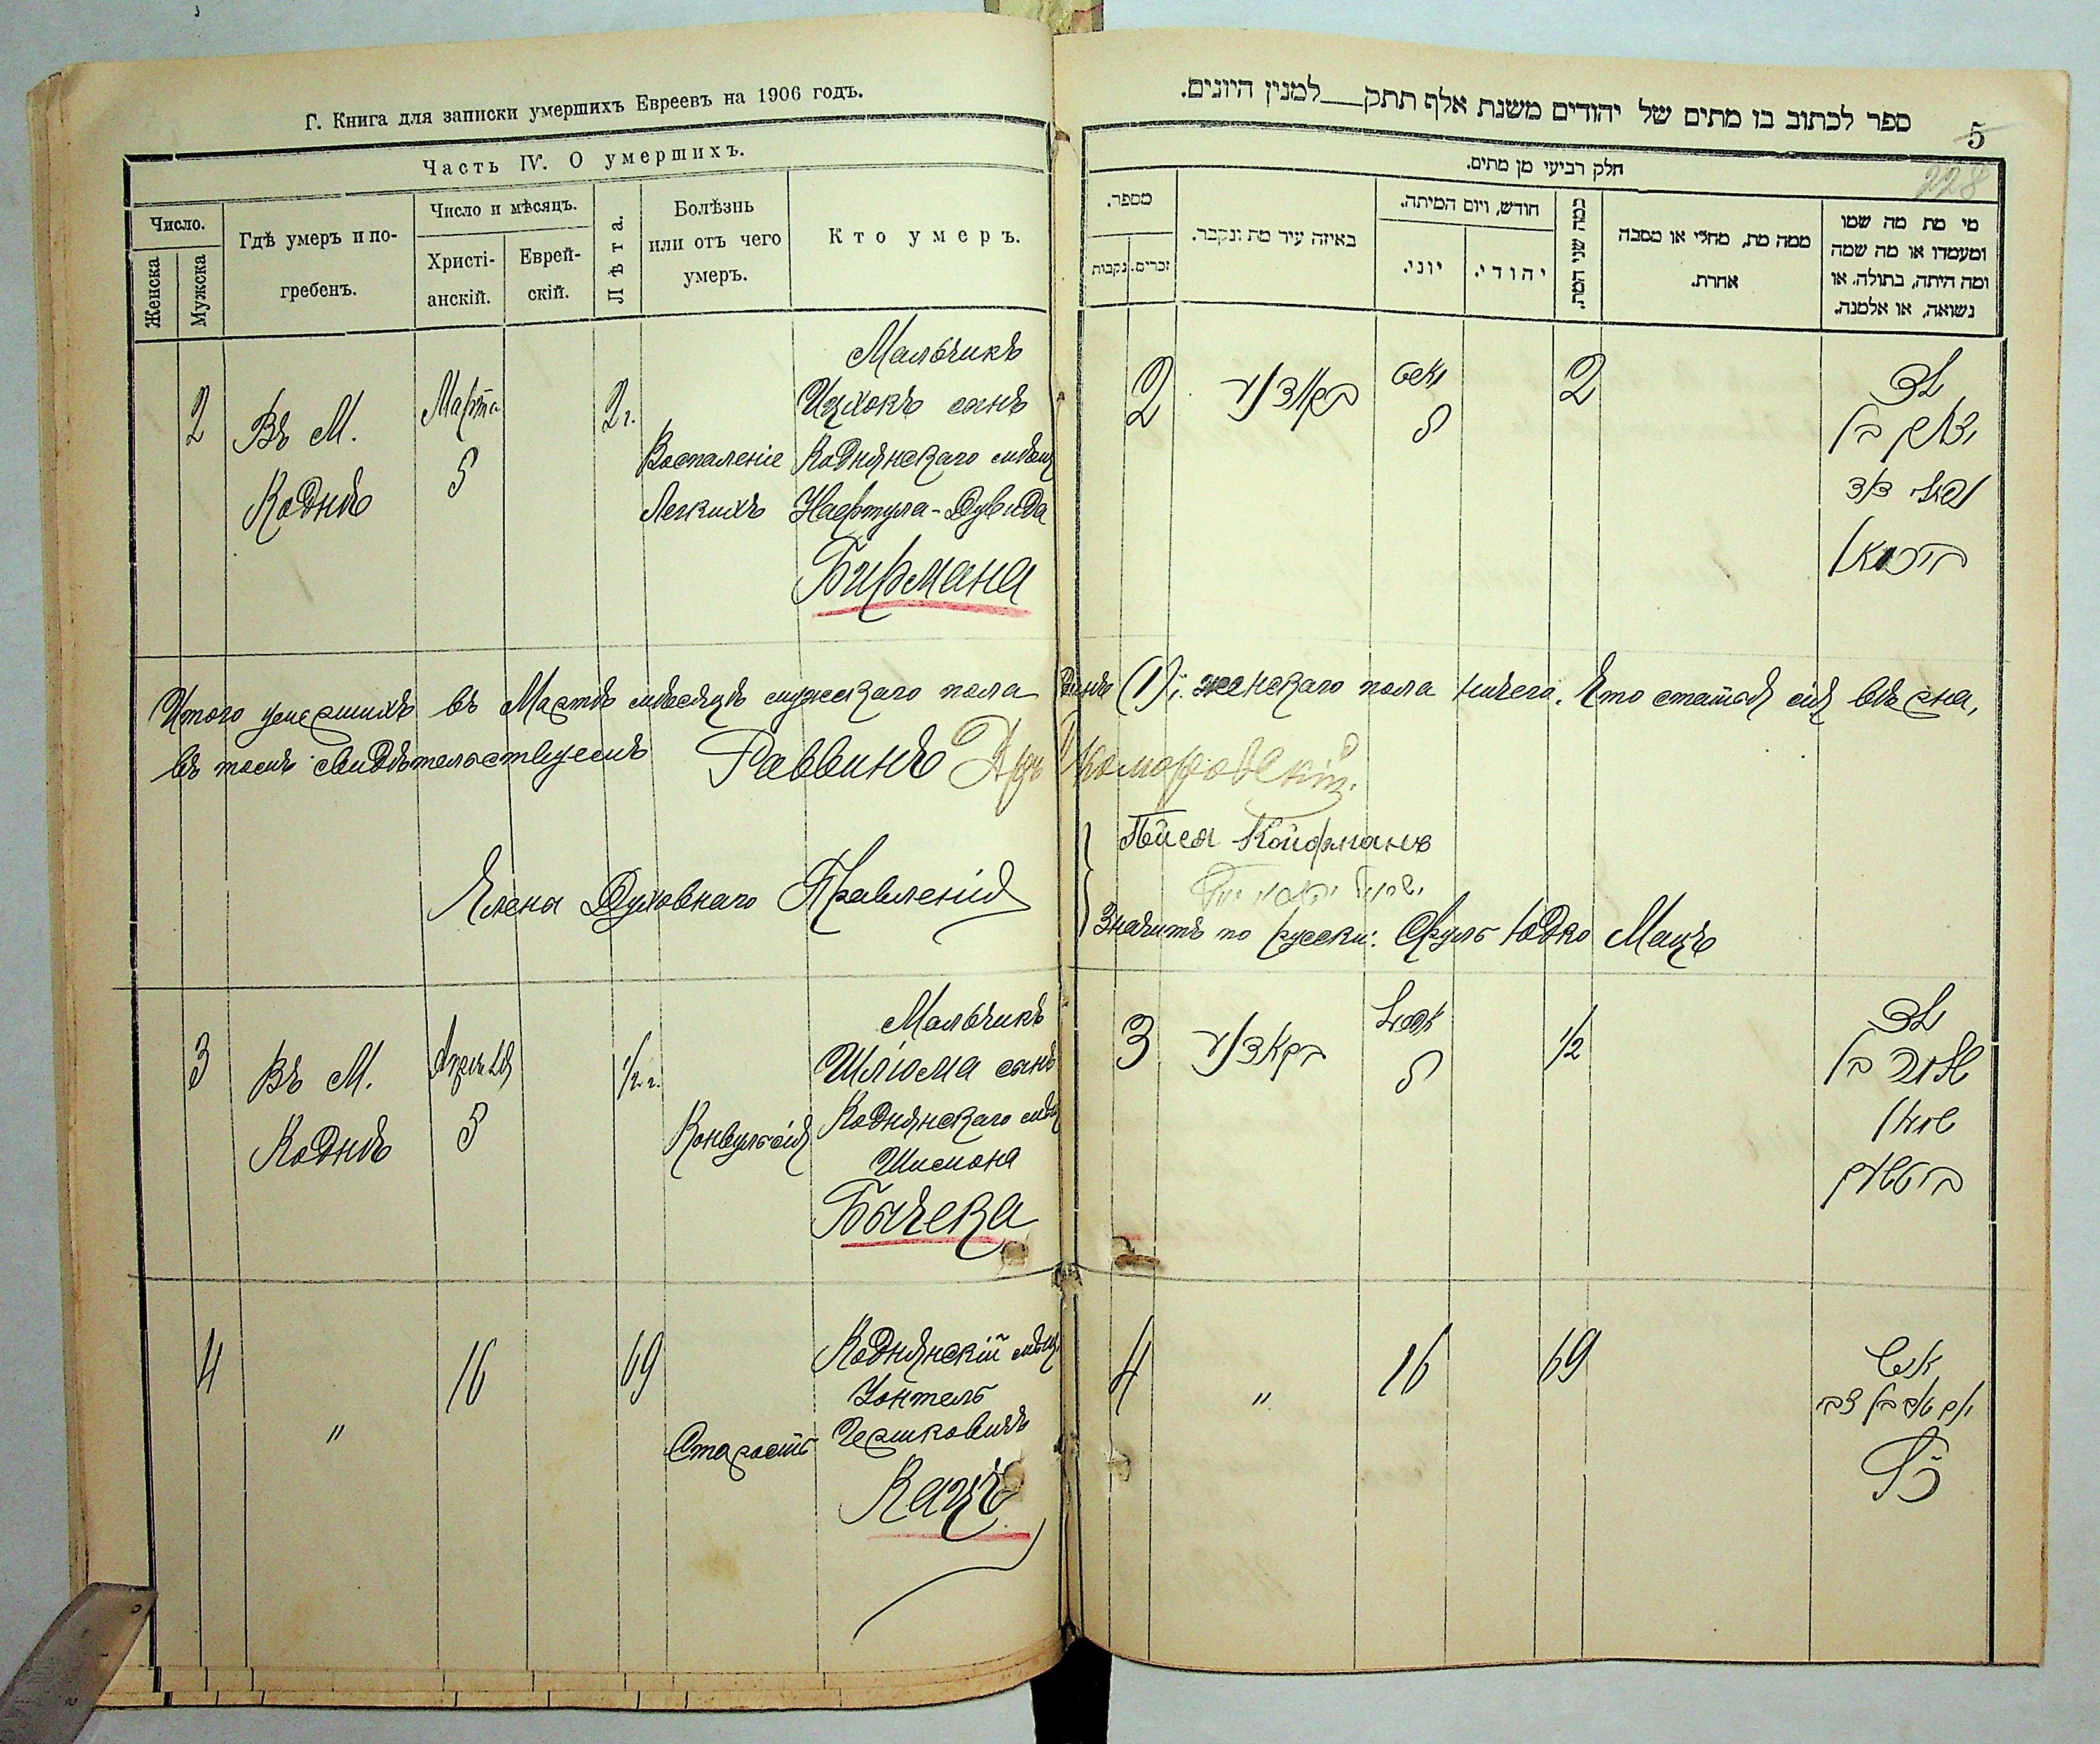 Г. Книга для записки умершихъ Евреевъ на 1906 годъ.
Часть IV. О умершихъ.
Число.
Женска
Мужска
Гдѣ умеръ и по-
гребенъ.
Число и мѣсяцъ.
Христі-
анскій.
Еврей-
скій.
Лѣта.
Болѣзнь
или отъ чего
умеръ.
Кто умеръ.
2
Въ М.
Коднѣ
Марта
5
2 г.
Воспаленіе
Легкихъ
Мальчикъ
Ицхокъ сынъ
Коднянскаго мѣщ
Нафтула-Дувида
Бирмана
Итого умершихъ въ Мартѣ мѣсяцѣ мужескаго пола одинъ (1) женскаго пола ничего. Что статья сія вѣрна,
въ томъ свидѣтельствуемъ Раввинъ
Члены Духовнаго Правленія
3
Въ М.
Коднѣ
Апрѣля
5
1/2 г.
Конвульсія
Мальчикъ
Шліома сынъ
Коднянскаго мѣщ
Шимона
Бычека
4
"
16
69
Старость
Коднянскій мѣщ.
Гершковичъ
Кацъ
ספר לכתוב בו מתים של יהודים משנת אלף תתק__למנין היונים.
5
228
חלק רביעי מן מתים.
מספר.
נקבות
זכרים.
באיזה עיר מת ונקבר.
חודש, ויום המיתה.
יוני.
יהודי.
כמה שני המת.
ממה מת, מחלי או מסבה
אחרת.
מי מת מה שמו
ומעמדו או מה שמה
ומה היתה, בתולה, או
נשואה, או אלמנה.
2
מארט
5
2
ילד
יצחק בן
נפתלי דוד
בירמאן
Койфманъ
Значитъ по русски: Сруль Юдко Мацъ
3
אפריל
5
1/2
ילד
שלמה בן
שמעון
4
"
16
69
איש
כ"ץ